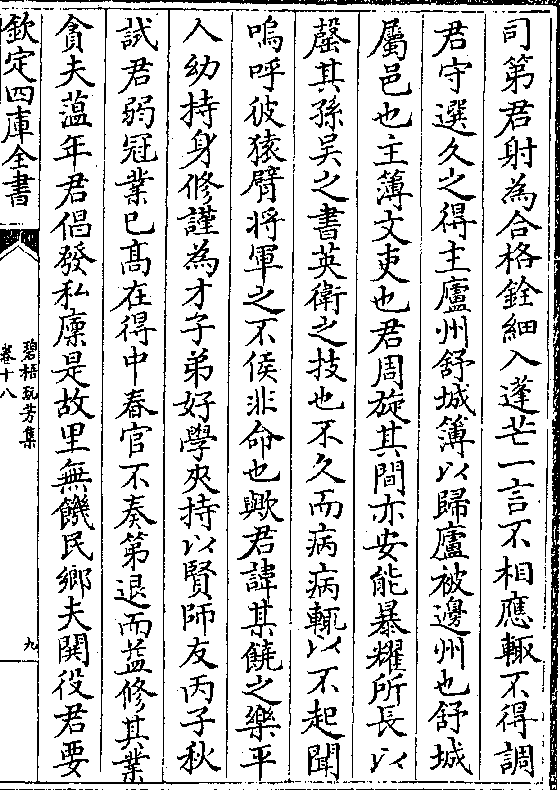 司第君射為合格銓細入蓬芒一言不相應輙不得調
君守選久之得主廬州舒城簿以歸廬被邊州也舒城
屬邑也主簿文吏也君周旋其間亦安能暴耀所長以
罄其孫吴之書英衛之技也不久而病病輒以不起聞
嗚呼彼猿臂将軍之不侯非命也歟君諱某饒之樂平
人幼持身修謹為才子弟好學夾持以賢師友丙子秋
試君弱冠業已髙在得中春官不奏第退而益修其業
貪夫蕰年君倡發私廪是故里無饑民鄉夫鬨役君要
欽定四庫全書
碧梧玩芳集
卷十八
九